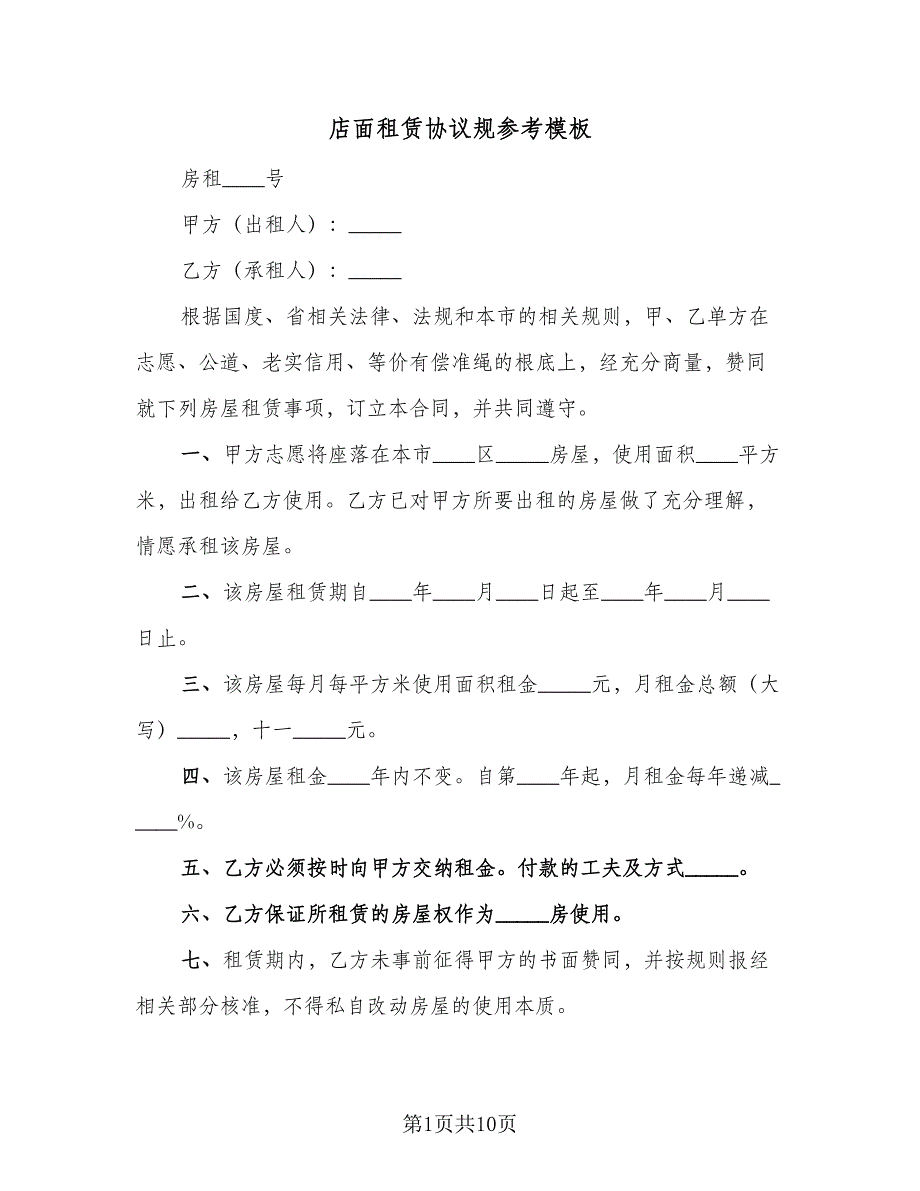 店面租赁协议规参考模板
房租____号
甲方（出租人）：_____
乙方（承租人）：_____
根据国度、省相关法律、法规和本市的相关规则，甲、乙单方在
志愿、公道、老实信用、等价有偿准绳的根底上，经充分商量，赞同
就下列房屋租赁事项，订立本合同，并共同遵守。
一、甲方志愿将座落在本市____区_____房屋，使用面积____平方
米，出租给乙方使用。乙方已对甲方所要出租的房屋做了充分理解，
情愿承租该房屋。
二、该房屋租赁期自____年____月____日起至____年____月____
日止。
三、该房屋每月每平方米使用面积租金_____元，月租金总额（大
写）_____，十一_____元。
四、该房屋租金____年内不变。自第____年起，月租金每年递减_
____%。
五、乙方必须按时向甲方交纳租金。付款的工夫及方式_____。
六、乙方保证所租赁的房屋权作为_____房使用。
七、租赁期内，乙方未事前征得甲方的书面赞同，并按规则报经
相关部分核准，不得私自改动房屋的使用本质。
第1页共10页